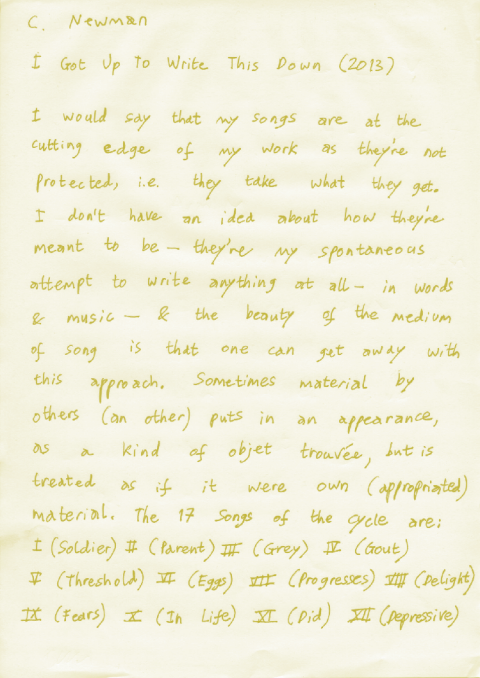 C. Newman
I Got Up To Write This Down (2013)
I would say that my songs are at the
cutting edge of my work as they're not
protected, i.e. they take what they get.
I don't have an idea about how they're
meant to be – they're my spontaneous
attempt to write anything at all – in words
& music – & the beauty of the medium
of song is that one can get away with
this approach. Sometimes material by
others (an other) puts in an appearance,
as a kind of objet trouvée, but is
treated as if it were own (appropriated)
material. The 17 Songs of the cycle are:
I (Soldier) II (Parent) III (Grey) IV (Gout)
V (Threshold) VI (Eggs) VII (Progresses) VIII (Delight)
IX (Fears) X (In Life) XI (Did) XII (Depressive)